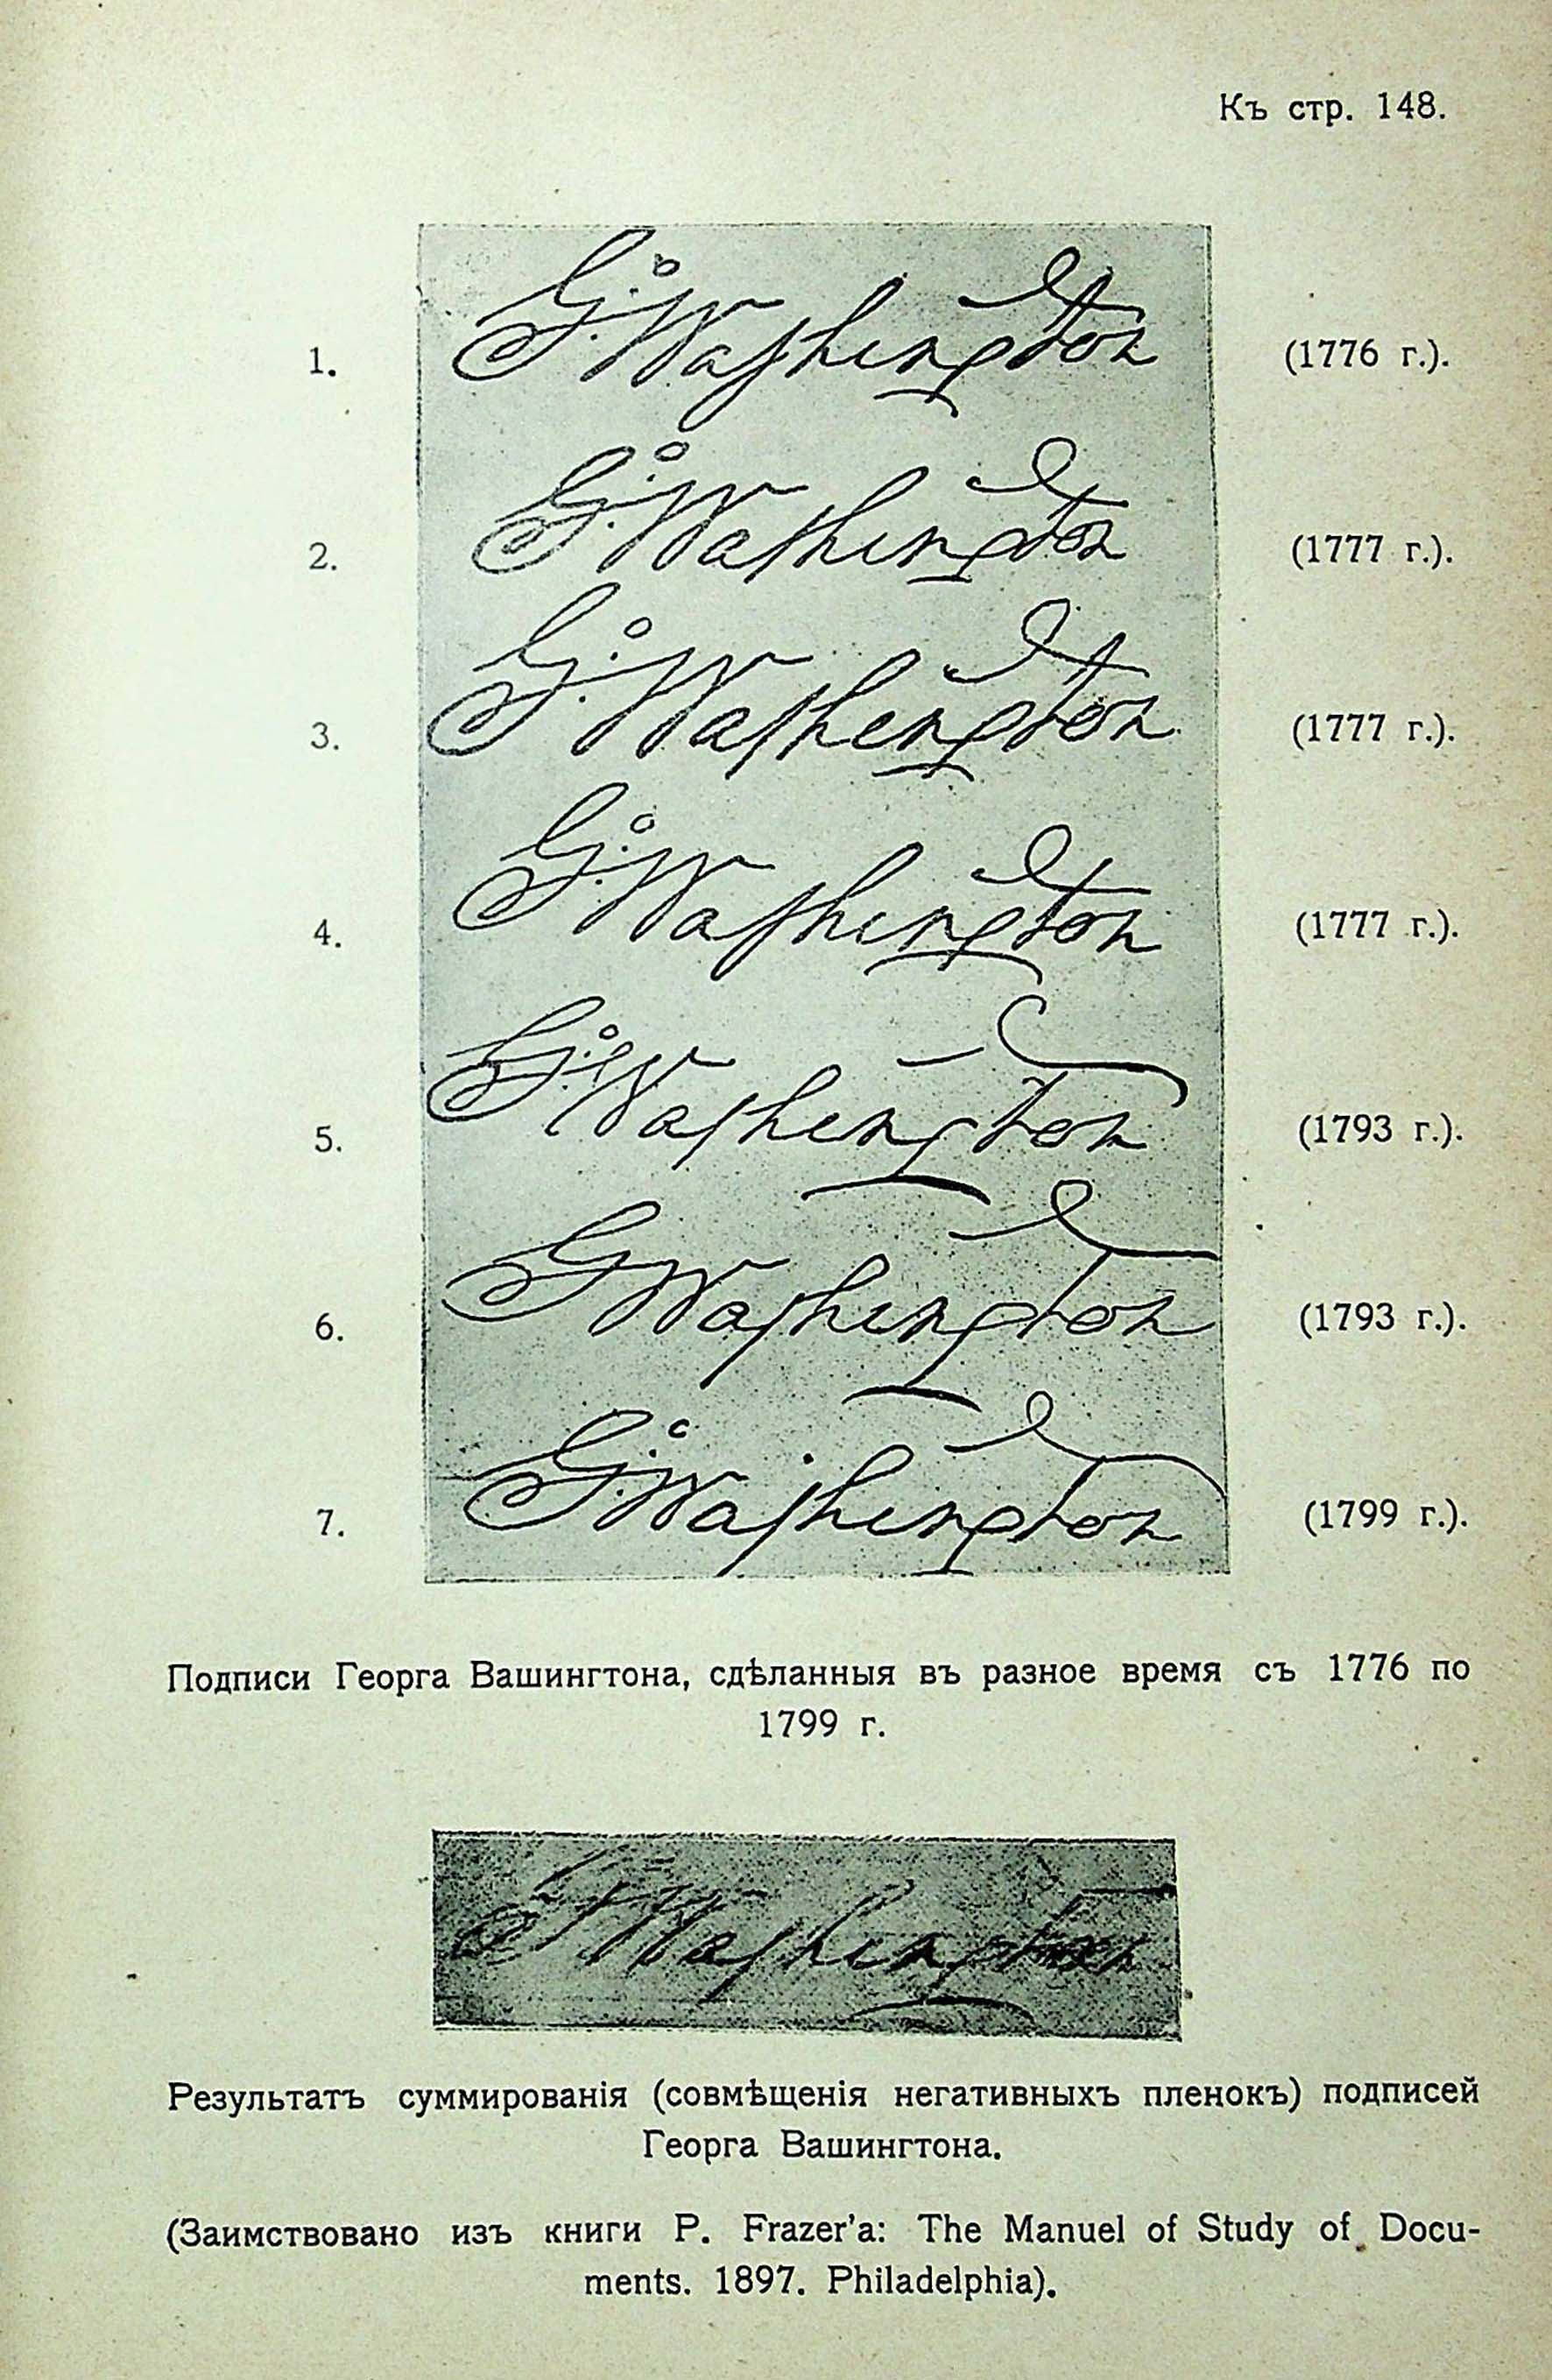 Къ стр. 148.
1. G:Washington (1776 г.).
2. G:Washington (1777 г.).
3. G:Washington (1777 г.).
4. G:Washington (1777 г.).
5. G:Washington (1793 г.).
6. GWashington (1793 г.).
7. G:Washington (1799 г.).
Подписи Георга Вашингтона, сдѣланныя въ разное время съ 1776 по
1799 г.
G Washington
Результатъ суммированія (совмѣщенія негативныхъ пленокъ) подписей
Георга Вашингтона.
(Заимствовано изъ книги P. Frazer'a: The Manuel of Study of Docu-
ments. 1897. Philadelphia).